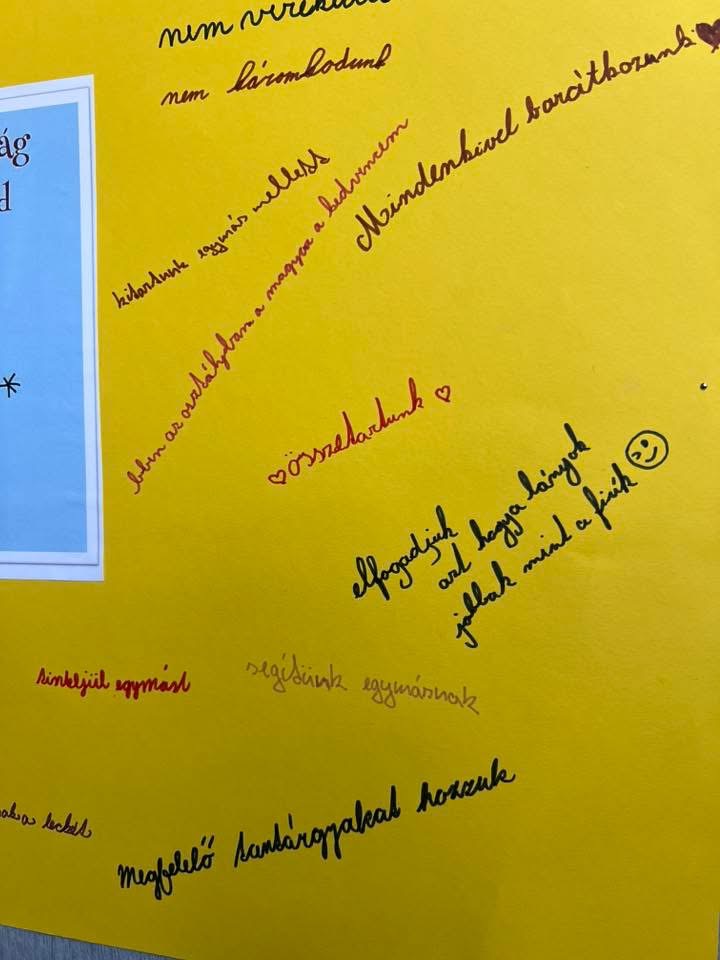 nem
nem káromkodunk
Mindenkivel barátkozunk
ág
d
kitartunk egymás melless
ebben az osztályban a magyar a kedvencem
összetartunk
elfogadjuk
azt hogy a lányok
jobbak mint a fiúk
segítünk egymásnak
egymást
a leckét
Megfelelő tantárgyakat hozzuk